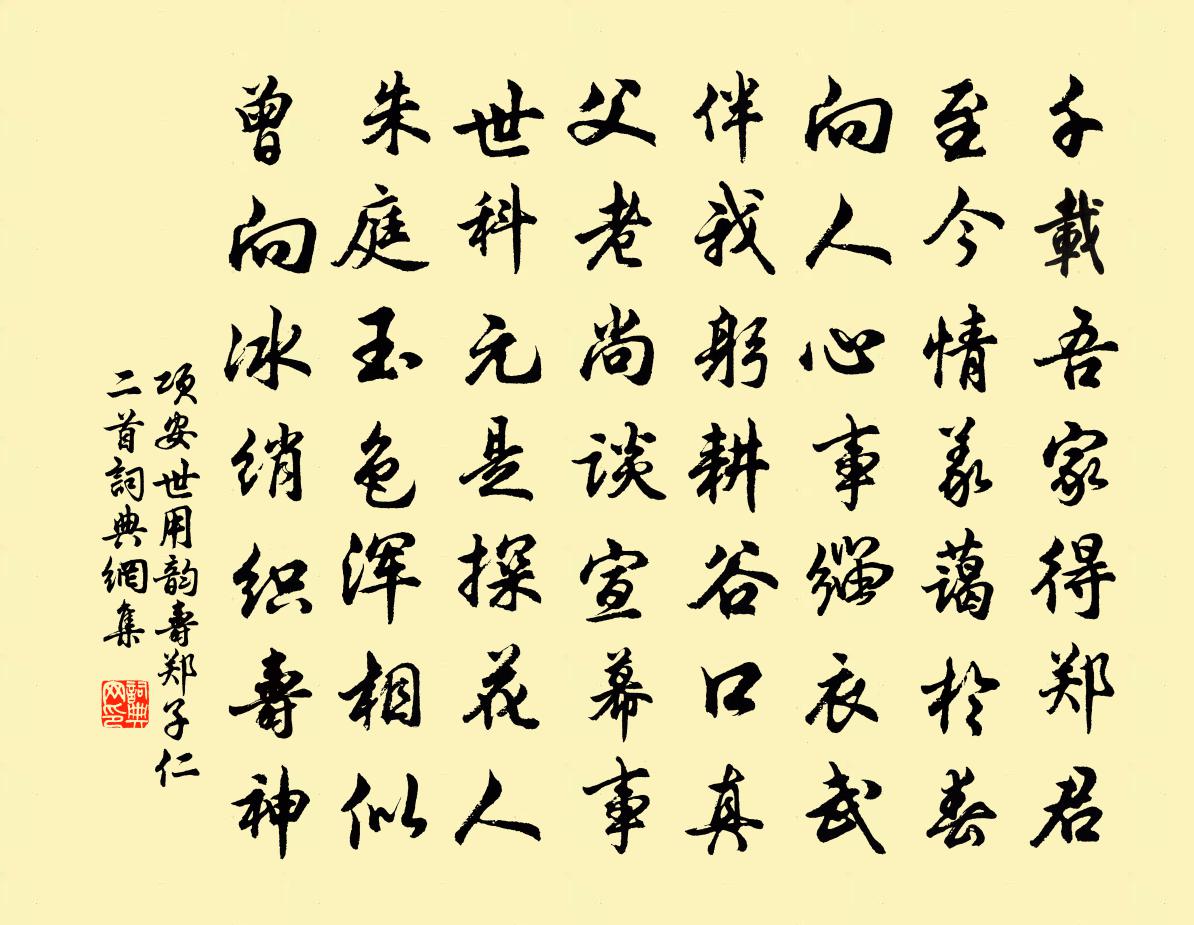 千載吾家得郑君
至今情義藹於春
向人心事缁衣武
伴我躬耕谷口真
父老尚談宣幕事
世科元是探花人
朱庭玉色浑相似
曾向冰绡织壽神
项安世用韵壽郑子仁
二首詞典網集
詞典
网印